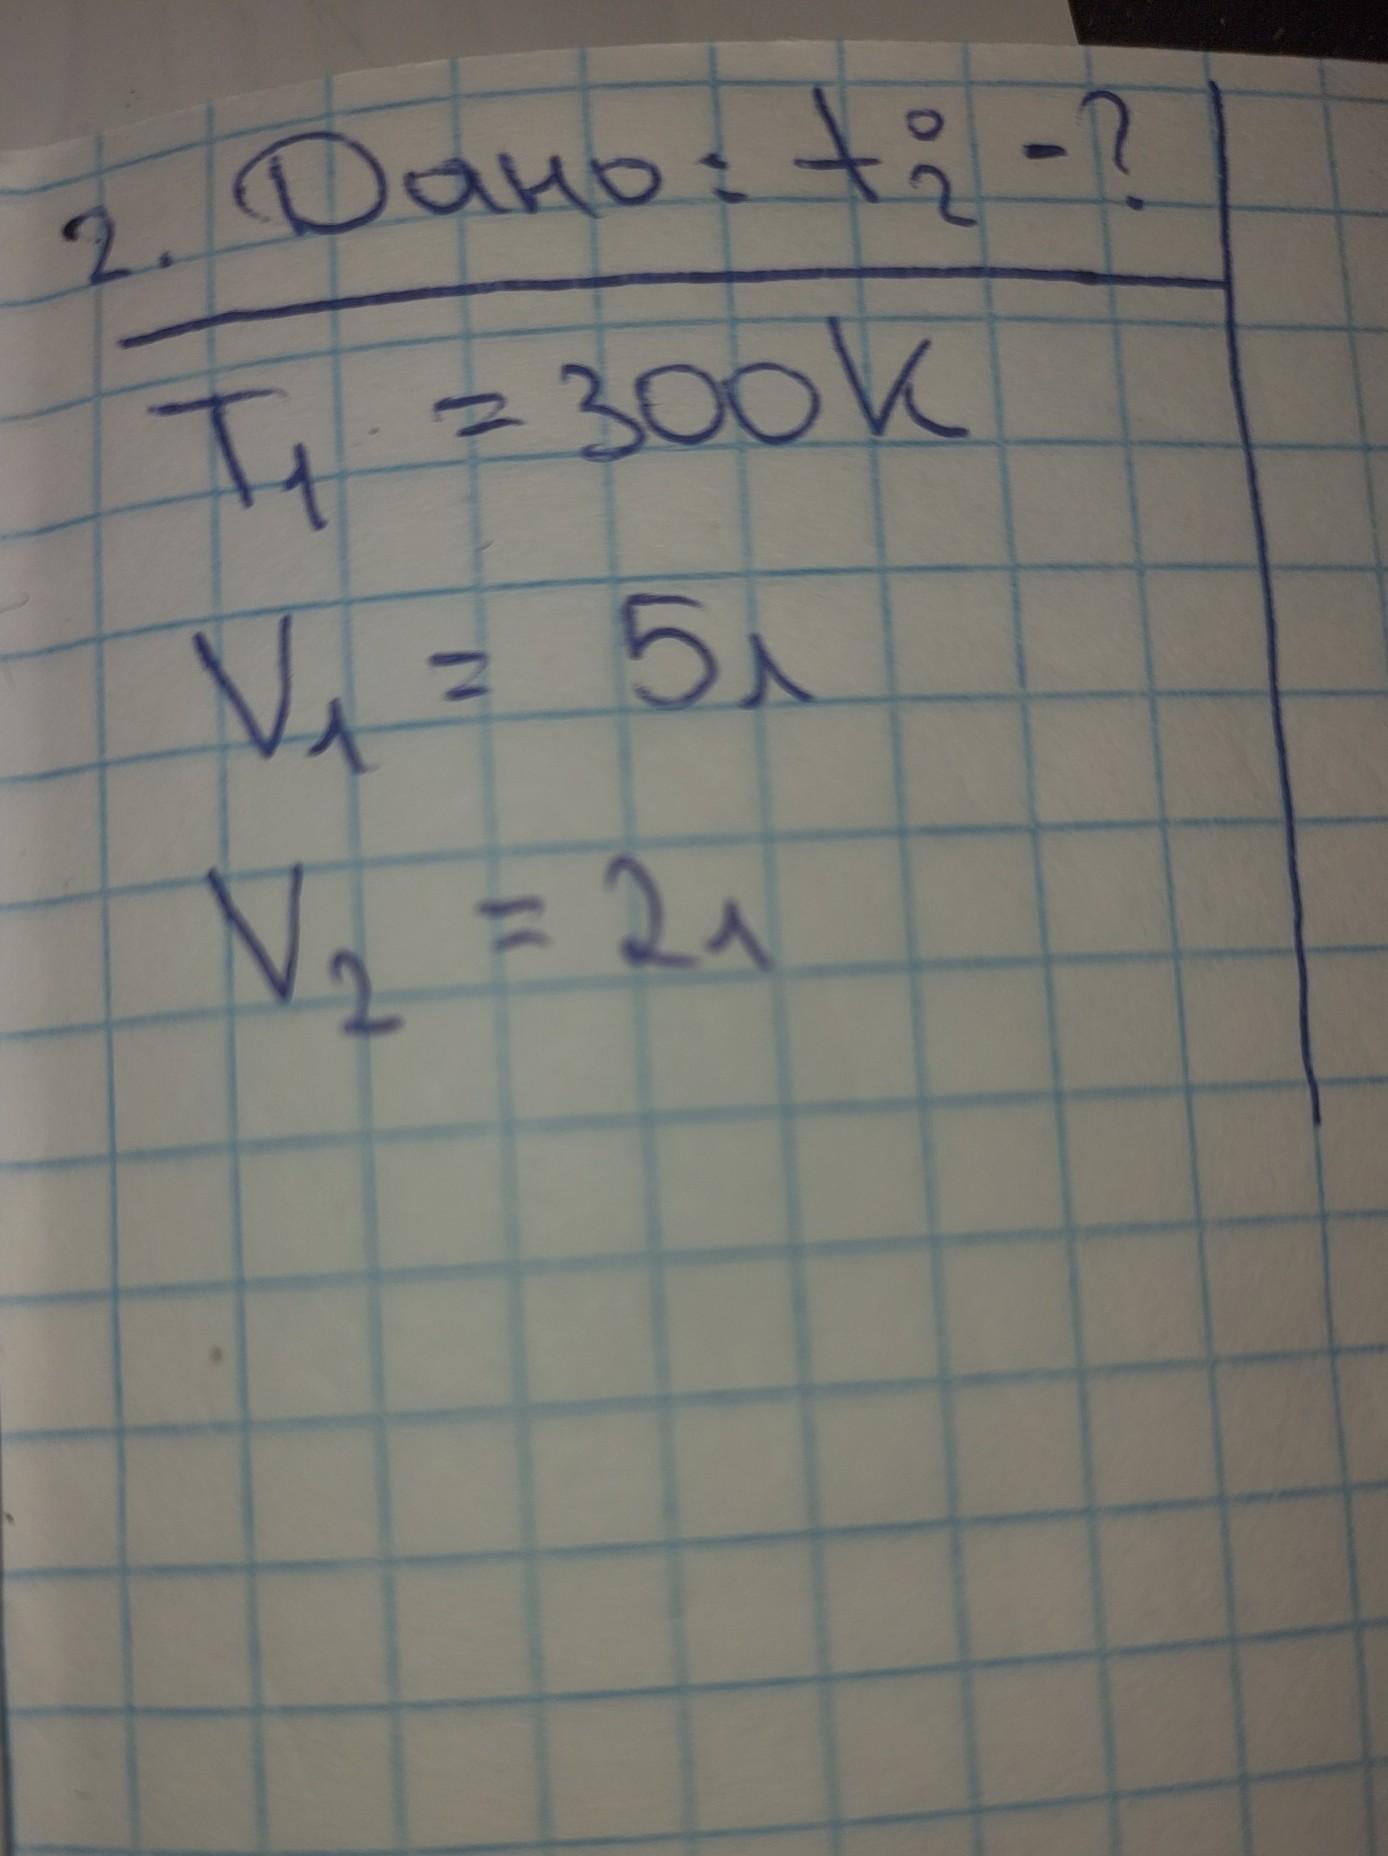 2. Дано: t°₂ - ?
T₁ = 300 К
V₁ = 5л
V₂ = 2л